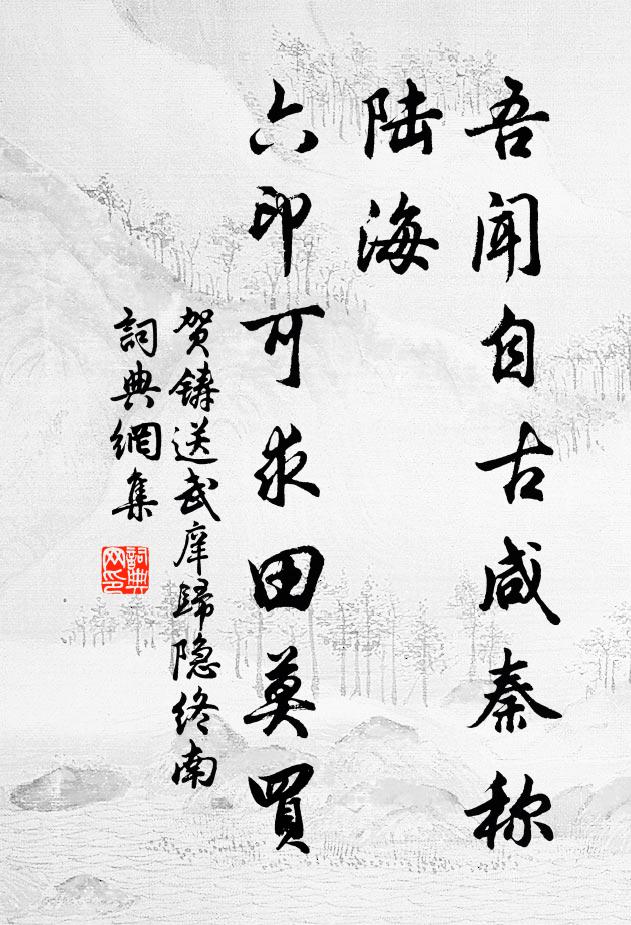 吾闻自古咸秦称
陆海
六印可求田莫買
贺鑄送武庠歸隐终南
詞典網集
詞典
网印